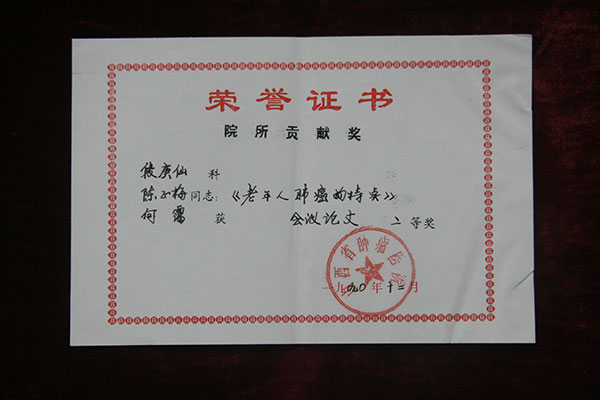 荣誉证书
院所贡献奖
科
陈玉梅同志：《老年人肺癌的特点》
何 获 会议论文 二等奖
西省肿瘤医院
一九九〇年十二月